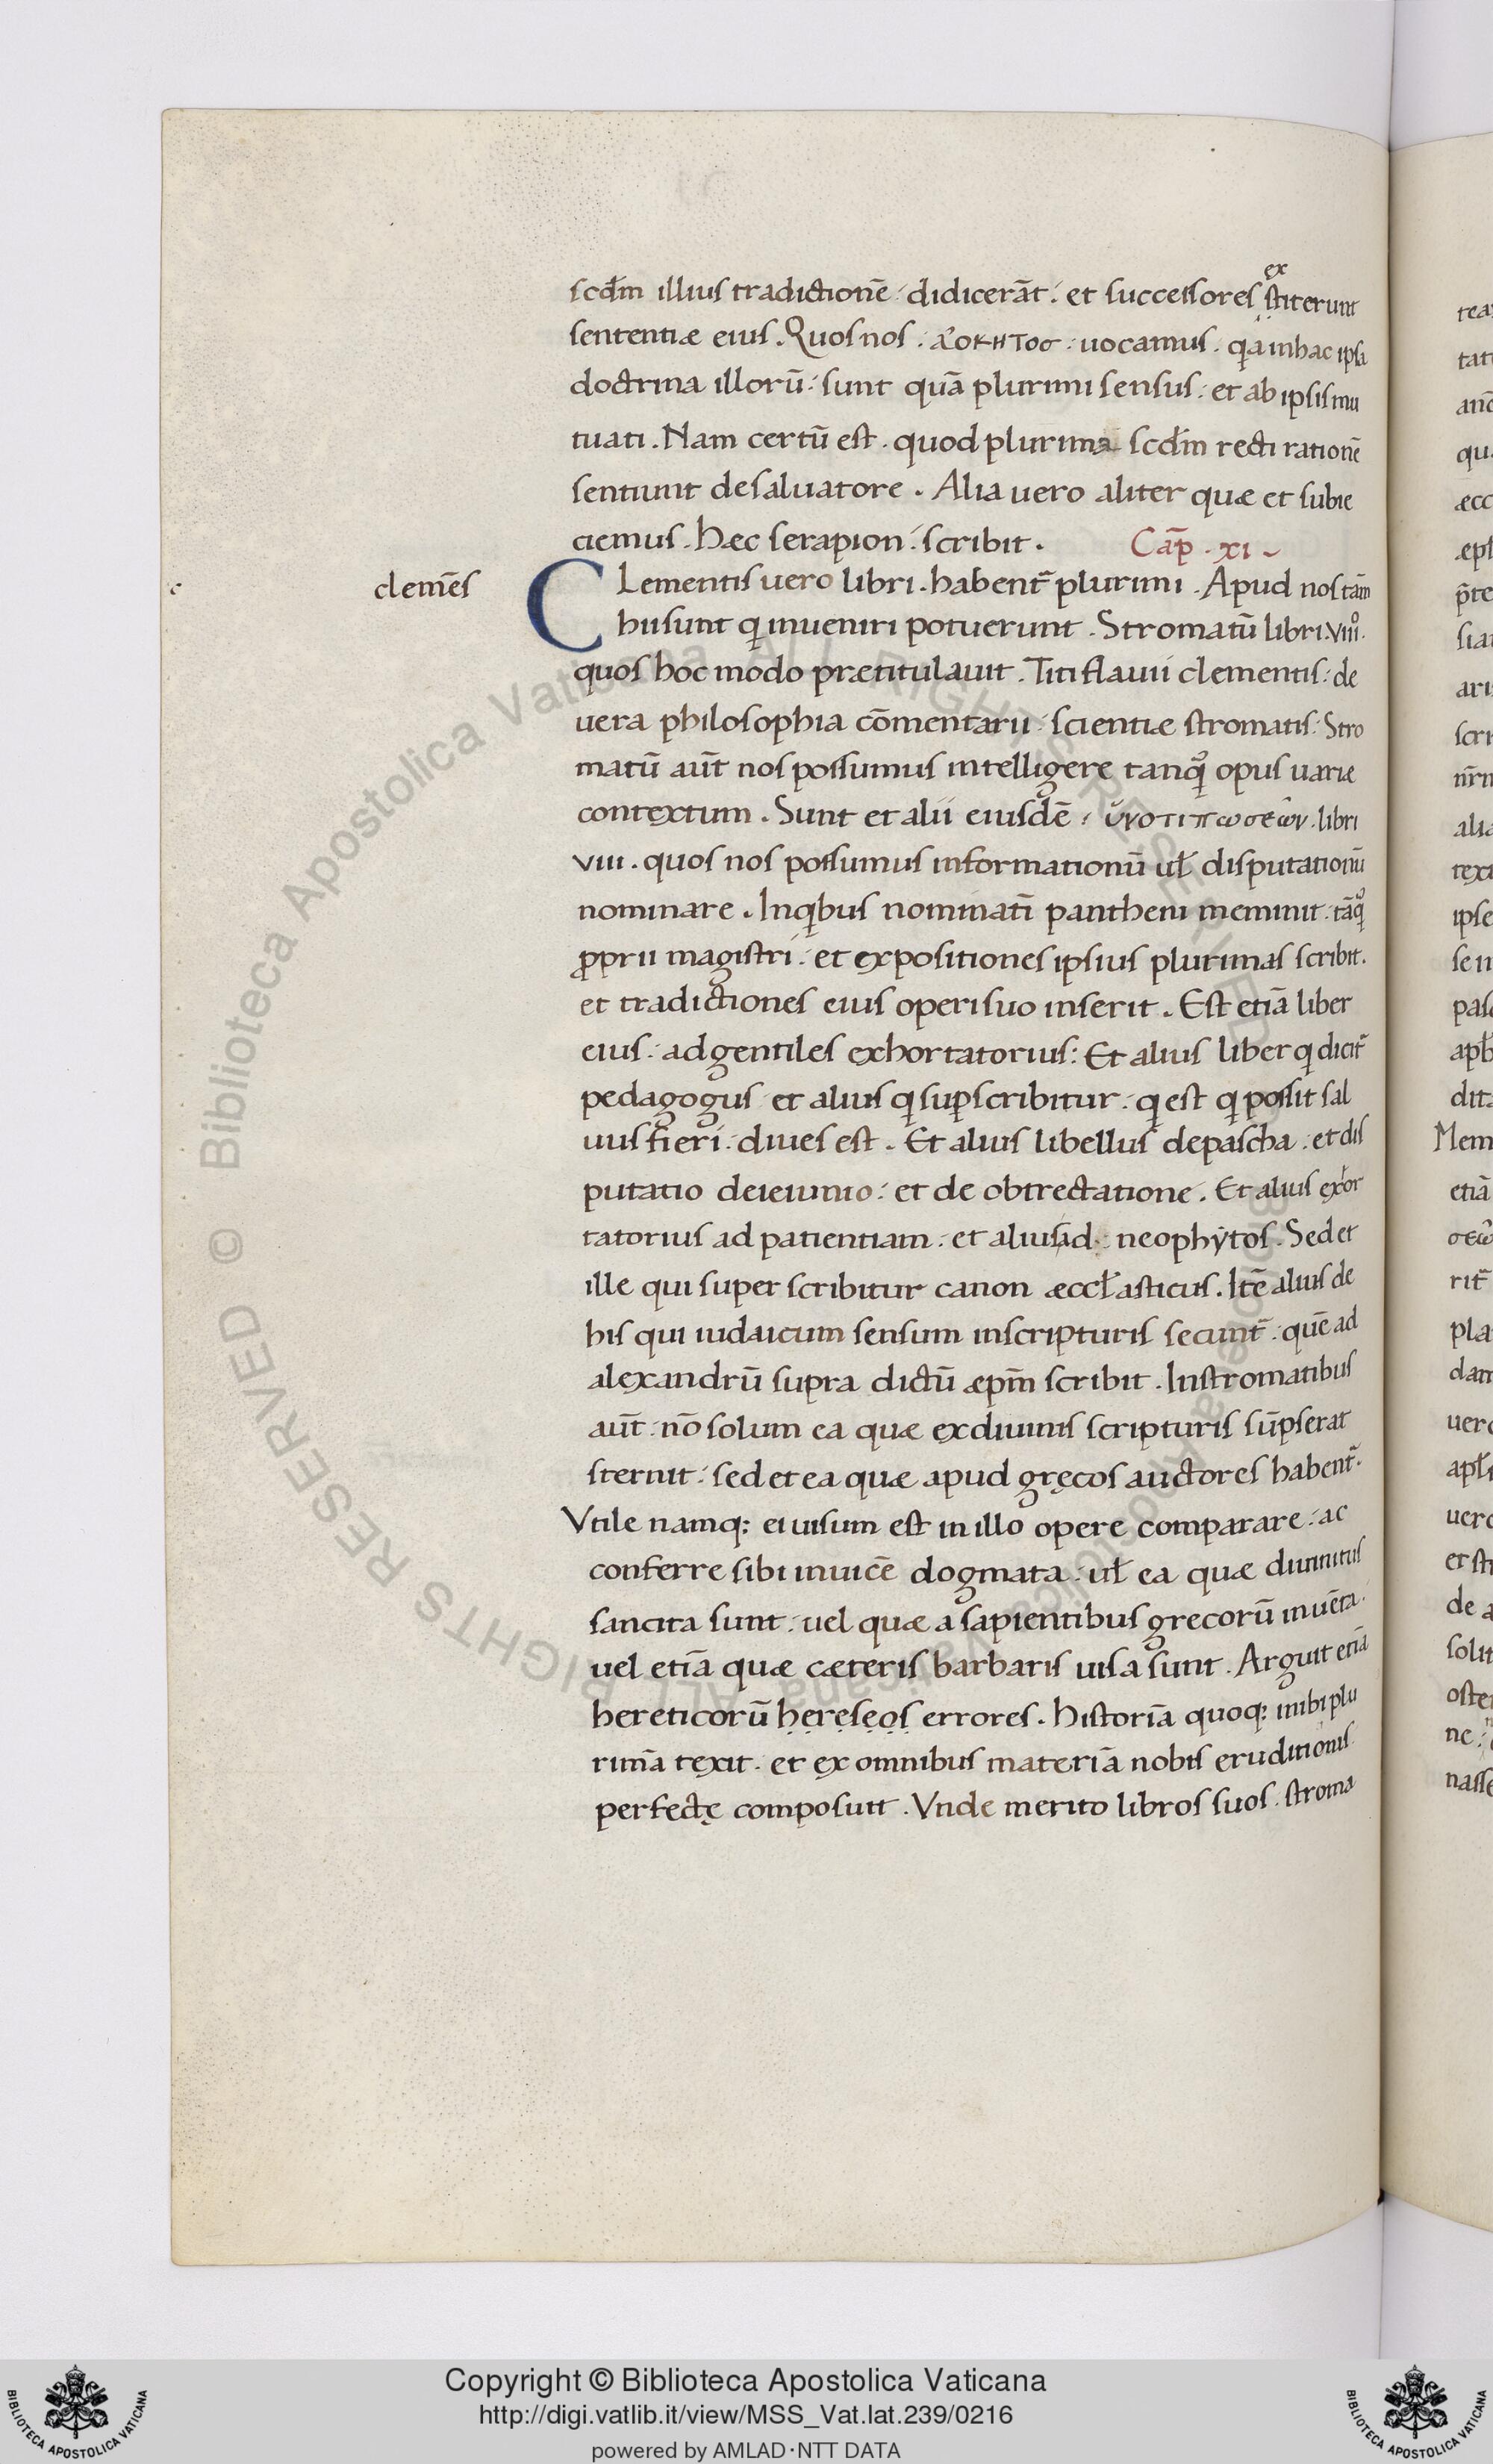 ex
scdm illius traditionē· didicerāt· et successores stiterunt
sententiæ eius. Quos nos· uocamus· qa in hac ipsa
doctrina illorū· sunt quā plurimi sensus· et ab ipsis mu
tuati. Nam certū est· quod plurima scdm recti rationē
sentiunt de saluatore. Alia uero aliter quæ et subie
ciemus. Hæc serapion· scribit.
Cap̄· xi
clemēs
CLementis uero libri· habent̄ plurimi. Apud nos tām
hii sunt qi inueniri potuerunt. Stromatū libri· viiiº·
quos hoc modo prætitulauit. Titi flauii clementis· de
uera philosophia cōmentarii· scientiæ stromatis· Stro
matū aut̄ nos possumus intelligere tanqͦ opus uariæ
contextum. Sunt et alii eiusdē· ὑνοτιπωσεω̂ν· libri
viii· quos nos possumus informationū ul̄ disputationū
nominare. In qibus nominatī pantheni meminit· tāqͦ
ꝓprii magistri· et expositiones ipsius plurimas scribit.
et traditiones eius operi suo inserit. Est etiā liber
eius· ad gentiles exhortatorius: Et alius liber qi dicit̄
pedagogus· et alius qi suꝑscribitur· qi est qi possit sal
uus fieri· diues est. Et alius libellus de pascha· et dis
putatio de ieiunio· et de obtrectatione. Et alius exhor
tatorius ad patientiam· et alius ad· neophẏtos. Sed et
ille qui super scribitur canon æccl̄asticus. Itē alius de
his qui iudaicum sensum in scripturis secunt̄· quē ad
alexandrū supra dictū æpm̄ scribit. In stromatibus
aut̄· nō solum ea quæ ex diuinis scripturis sūpserat
sternit· sed et ea quæ apud gręcos auctores habent̄·
Vtile namq; ei uisum est in illo opere comparare· ac
conferre sibi inuicē dogmata· ul̄ ea quæ diuinitus
sancita sunt· uel quæ a sapientibus grecorū inuēta·
uel etiā quæ cæteris barbaris uisa sunt. Arguit etiā
hereticorū hereseos errores. Historiā quoq; inibi plu
rimā texit· et ex omnibus materiā nobis eruditionis
perfectę composuit. Vnde merito libros suos· stroma
Copyright © Biblioteca Apostolica Vaticana
http://digi.vatlib.it/view/MSS_Vat.lat.239/0216
powered by AMLAD·NTT DATA